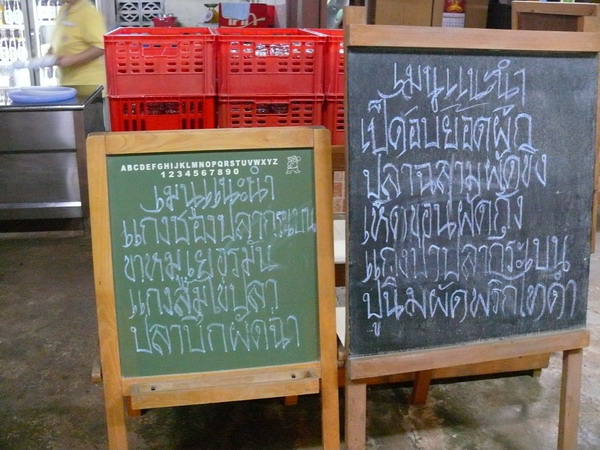 ABCDEFGHIJKLMNOPQRSTUVWXYZ
1234567890
เมนูแนะนำ
แกงปลากระเบน
ขาหมูเยอรมัน
แกงส้มไข่ปลา
ปลาบึกผัดฉ่า
เมนูแนะนำ
เป็ดอบยอดผัก
ปลาฉลามผัดขิง
เห็ดขอนผัดกุ้ง
แกงป่าปลากระเบน
ปูนิ่มผัดพริกไทดำ